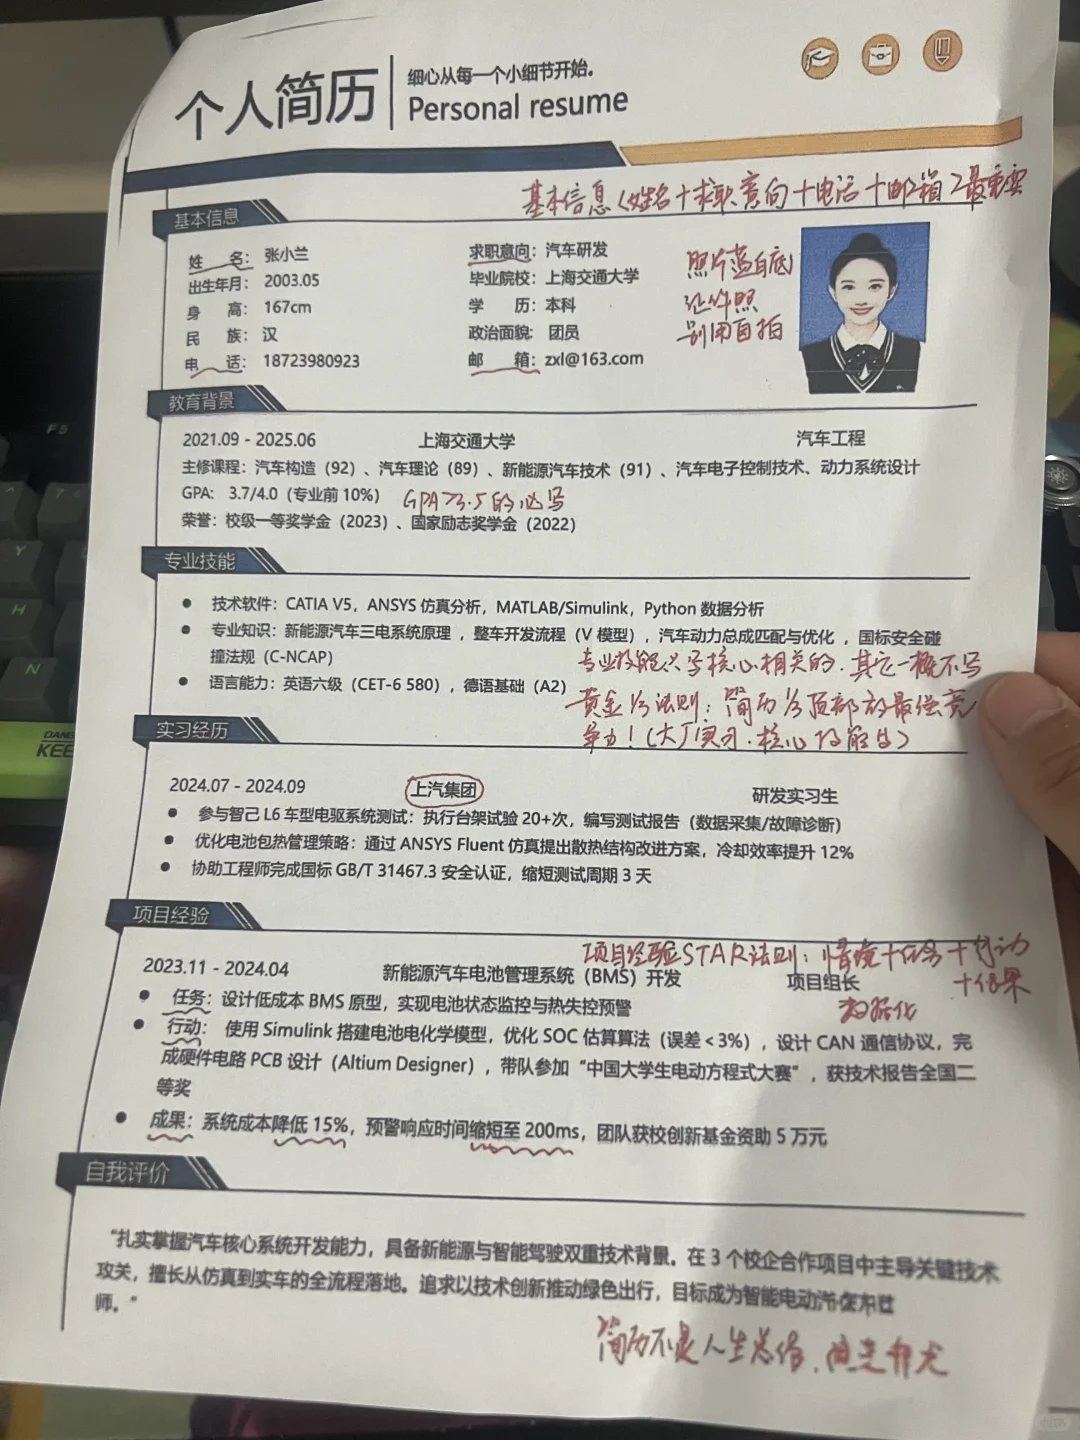 个人简历
细心从每一个小细节开始。
Personal resume
基本信息（姓名+求职意向+电话+邮箱）最重要
基本信息
姓 名： 张小兰
求职意向：汽车研发
出生年月： 2003.05
毕业院校：上海交通大学
身 高： 167cm
学 历：本科
民 族： 汉
政治面貌： 团员
电 话： 18723980923
邮 箱：zxl@163.com
照片蓝白底
证件照
别用自拍
教育背景
2021.09 - 2025.06 上海交通大学 汽车工程
主修课程：汽车构造（92）、汽车理论（89）、新能源汽车技术（91）、汽车电子控制技术、动力系统设计
GPA: 3.7/4.0（专业前 10%）
GPA>3.5的必写
荣誉：校级一等奖学金（2023）、国家励志奖学金（2022）
专业技能
● 技术软件：CATIA V5，ANSYS 仿真分析，MATLAB/Simulink，Python 数据分析
● 专业知识：新能源汽车三电系统原理 ，整车开发流程（V 模型），汽车动力总成匹配与优化 ，国标安全碰
撞法规（C-NCAP）
专业技能只写核心相关的.其它一概不写
● 语言能力：英语六级（CET-6 580），德语基础（A2）
黄金⅓法则：简历⅓顶部放最强竞
争力！（大厂实习.核心技能等）
实习经历
2024.07 - 2024.09 上汽集团 研发实习生
● 参与智己 L6 车型电驱系统测试：执行台架试验 20+次，编写测试报告（数据采集/故障诊断）
● 优化电池包热管理策略：通过 ANSYS Fluent 仿真提出散热结构改进方案，冷却效率提升 12%
● 协助工程师完成国标 GB/T 31467.3 安全认证，缩短测试周期 3 天
项目经验
项目经验STAR法则：情境+任务+行动
+结果
数据化
2023.11 - 2024.04 新能源汽车电池管理系统（BMS）开发 项目组长
● 任务：设计低成本 BMS 原型，实现电池状态监控与热失控预警
● 行动： 使用 Simulink 搭建电池电化学模型，优化 SOC 估算算法（误差<3%），设计 CAN 通信协议，完
成硬件电路 PCB 设计（Altium Designer），带队参加“中国大学生电动方程式大赛”，获技术报告全国二
等奖
● 成果：系统成本降低 15%，预警响应时间缩短至 200ms，团队获校创新基金资助 5 万元
自我评价
“扎实掌握汽车核心系统开发能力，具备新能源与智能驾驶双重技术背景。在 3 个校企合作项目中主导关键技术
攻关，擅长从仿真到实车的全流程落地。追求以技术创新推动绿色出行，目标成为智能电动汽
师。”
简历不是人生总结
F5
Y
H
N
小红书